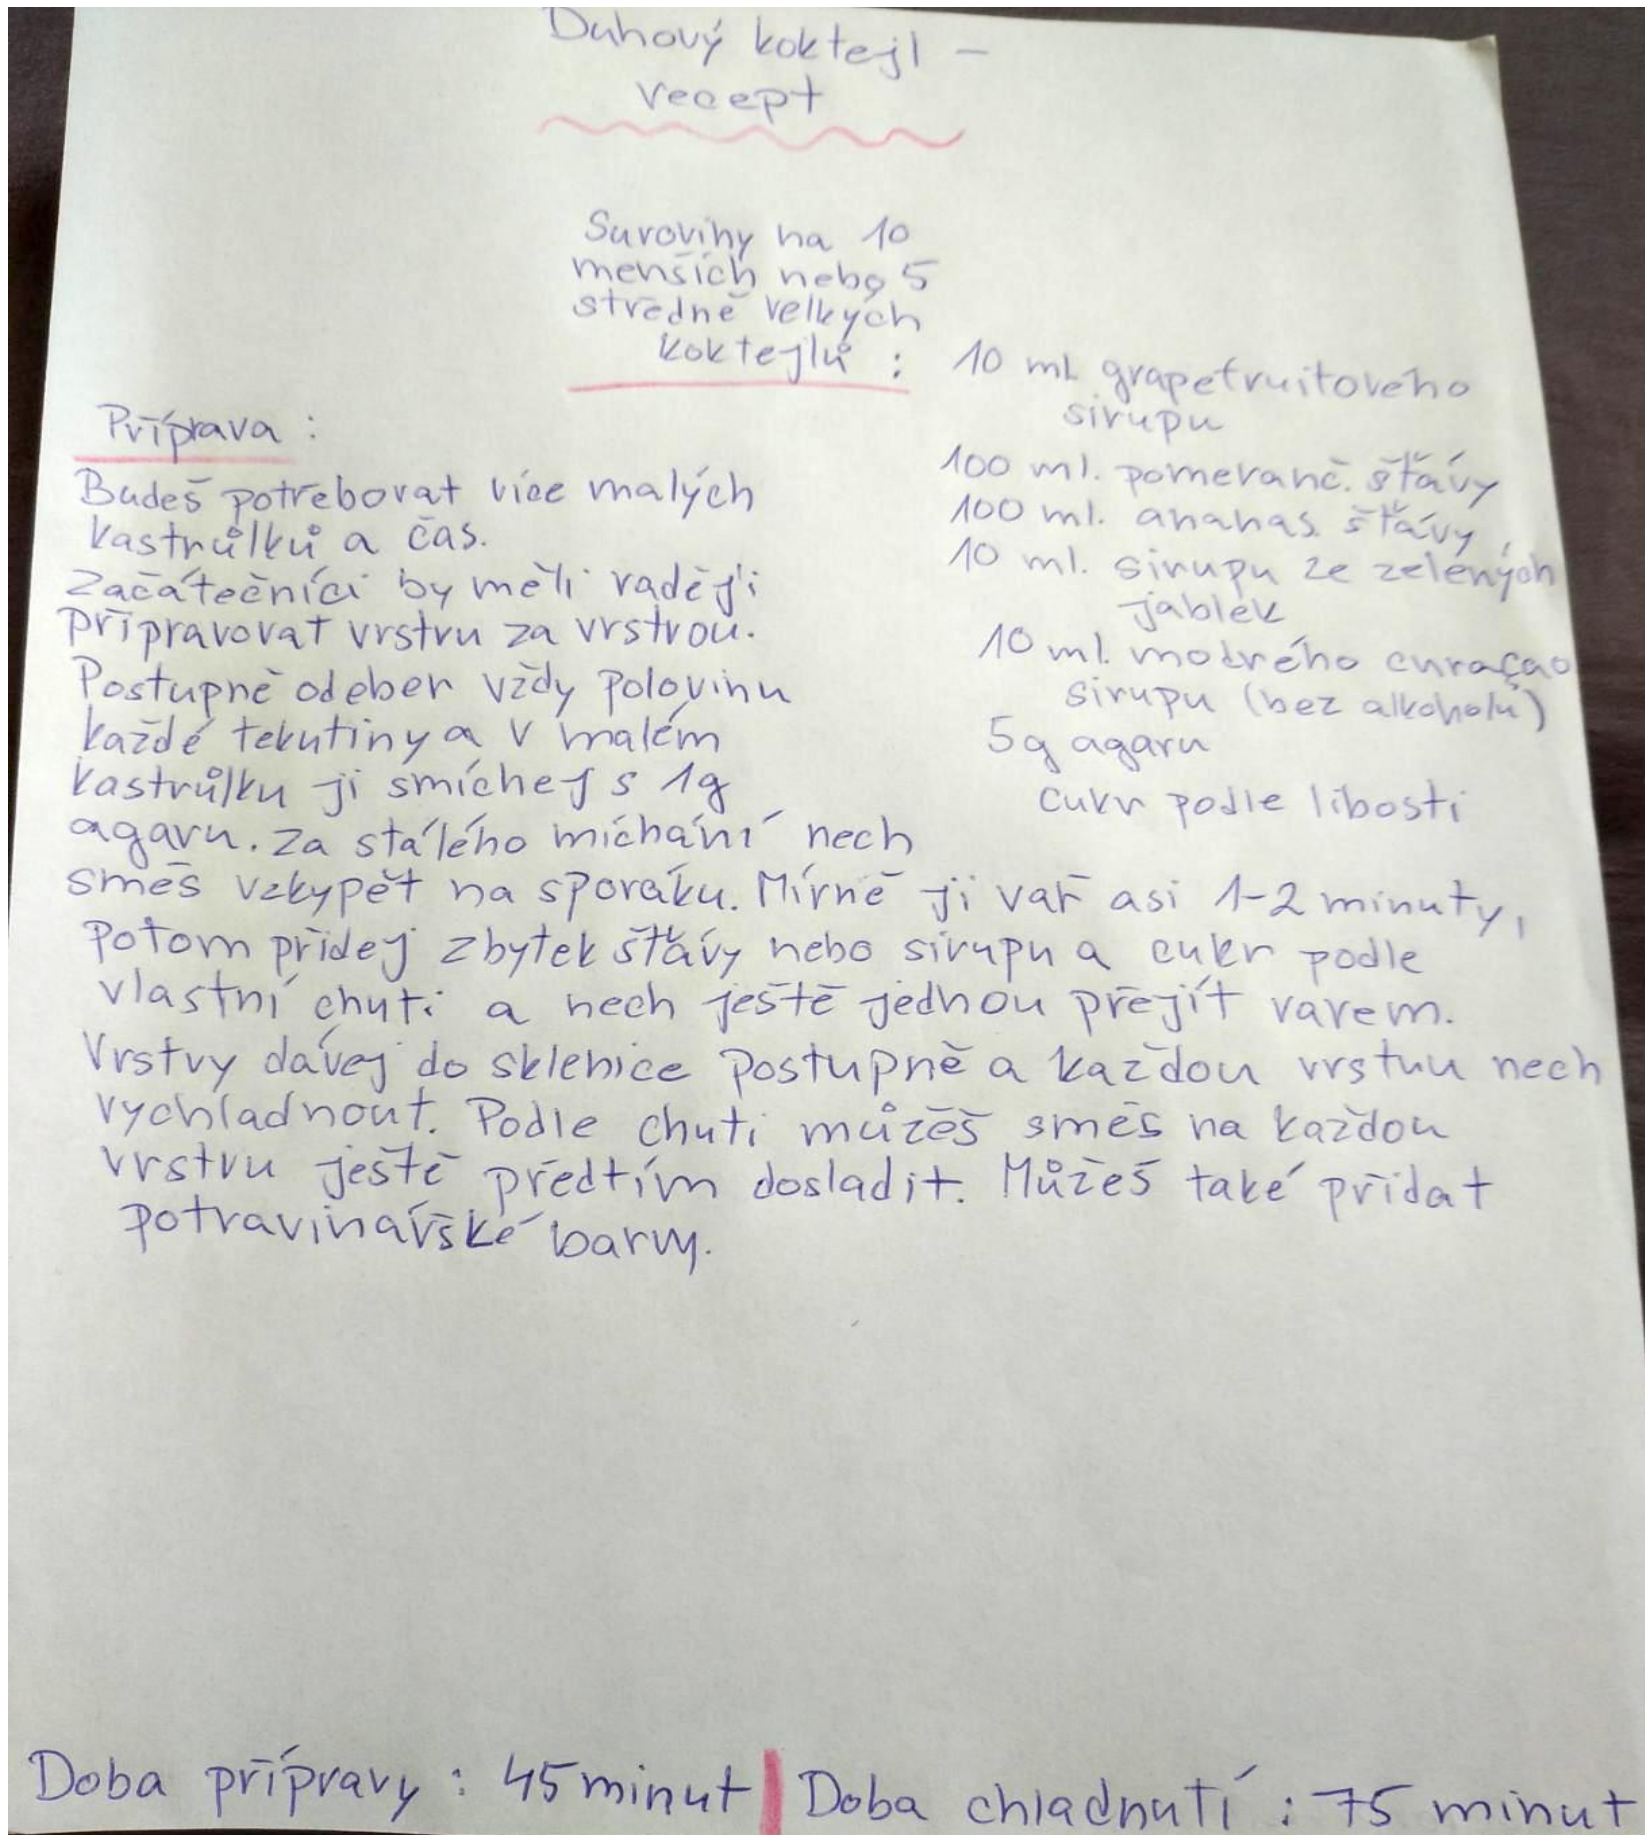 Duhový koktejl –
recept
Suroviny na 10
menších nebo 5
středně velkých
koktejlů :
10 ml grapefruitového
sirupu
100 ml. pomeranč. šťávy
100 ml. ananas. šťávy
10 ml. sirupu ze zelených
jablek
10 ml. modrého curaçao
sirupu (bez alkoholu)
5g agaru
cukr podle libosti
Příprava :
Budeš potřebovat více malých
kastrůlků a čas.
Začátečníci by měli raději
připravovat vrstvu za vrstvou.
Postupně odeber vždy polovinu
každé tekutiny a v malém
kastrůlku ji smíchej s 1g
agaru. Za stálého míchání nech
směs vzkypět na sporáku. Mírně ji vař asi 1-2 minuty,
potom přidej zbytek šťávy nebo sirupu a cukr podle
vlastní chuti a nech ještě jednou přejít varem.
Vrstvy dávej do sklenice postupně a každou vrstvu nech
vychladnout. Podle chuti můžeš směs na každou
vrstvu ještě předtím dosladit. Můžeš také přidat
potravinářské barvy.
Doba přípravy : 45 minut | Doba chladnutí : 75 minut